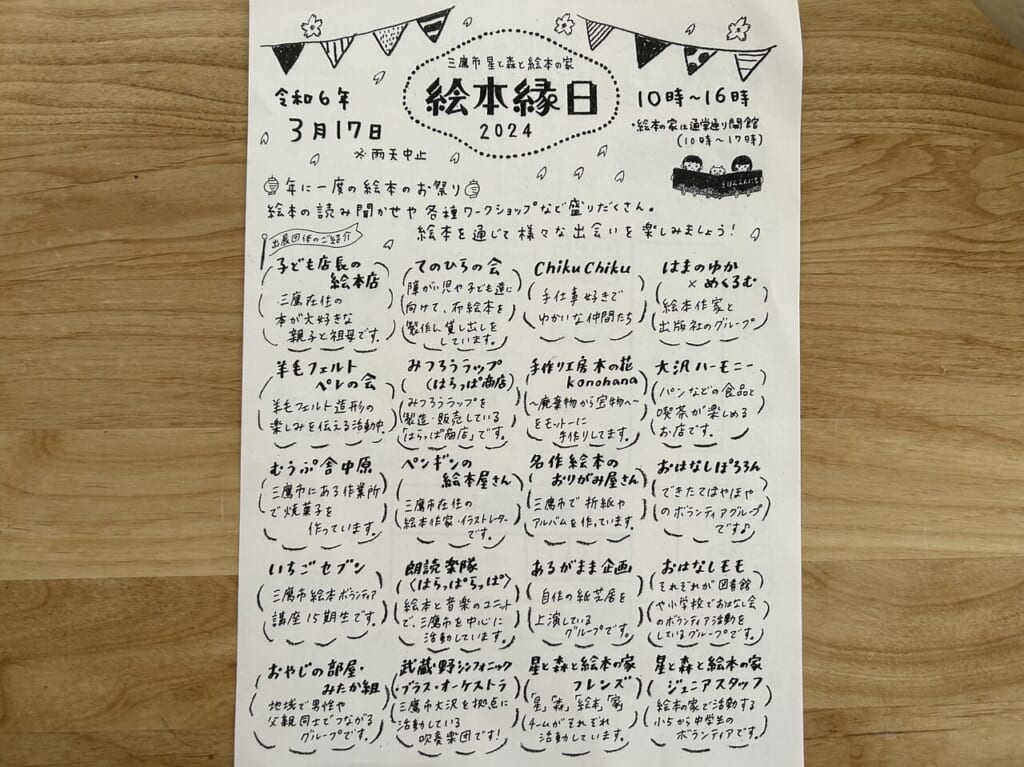 三鷹市 星と森と絵本の家
絵本縁日
2024
令和6年
3月17日
※雨天中止
10時～16時
・絵本の家は通常通り開館
(10時～17時)
年に一度の絵本のお祭り
絵本の読み聞かせや各種ワークショップなど盛りだくさん。
絵本を通じて様々な出会いを楽しみましょう！
出展団体のご紹介
子ども店長の
絵本店
三鷹在住の
本が大好きな
親子と祖母です。
てのひらの会
障がい児や子ども達に
向けて、布絵本を
製作し、貸し出しを
しています。
Chiku Chiku
手仕事好きで
ゆかいな仲間たち
はまのゆか
×めくるむ
絵本作家と
出版社のグループ
羊毛フェルト
ペレの会
羊毛フェルト造形の
楽しみを伝える活動中。
みつろうラップ
(はらっぱ商店)
みつろうラップを
製造・販売している
「はらっぱ商店」です。
手作り工房 木の花
konohana
～廃棄物から宝物へ～
をモットーに
手作りしてます。
大沢ハーモニー
パンなどの食品と
喫茶が楽しめる
お店です。
むうぷ舎中原
三鷹市にある作業所
で焼菓子を
作っています。
ペンギンの
絵本屋さん
三鷹市在住の
絵本作家・イラストレーター
です。
名作絵本の
おりがみ屋さん
三鷹市で折紙や
アルバムを作っています。
おはなしぽろろん
できたてほやほや
のボランティアグループ
です♪
いちごセブン
三鷹市絵本ボランティア
講座15期生です。
朗読楽隊
〈はらっぱらっぱ〉
絵本と音楽のユニット
で、三鷹市を中心に
活動しています。
あるがまま企画
自作の紙芝居を
上演している
グループです。
おはなしモモ
それぞれが図書館
や小学校でおはなし会
のボランティア活動を
しているグループです。
おやじの部屋・
みたか組
地域で男性や
父親同士でつながる
グループです。
武蔵野シンフォニック
・ブラス・オーケストラ
三鷹市大沢を拠点に
活動している
吹奏楽団です！
星と森と絵本の家
フレンズ
「星」「森」「絵本」「家」
チームがそれぞれ
活動しています。
星と森と絵本の家
ジュニアスタッフ
絵本の家で活動する
小5から中学生の
ボランティアです。